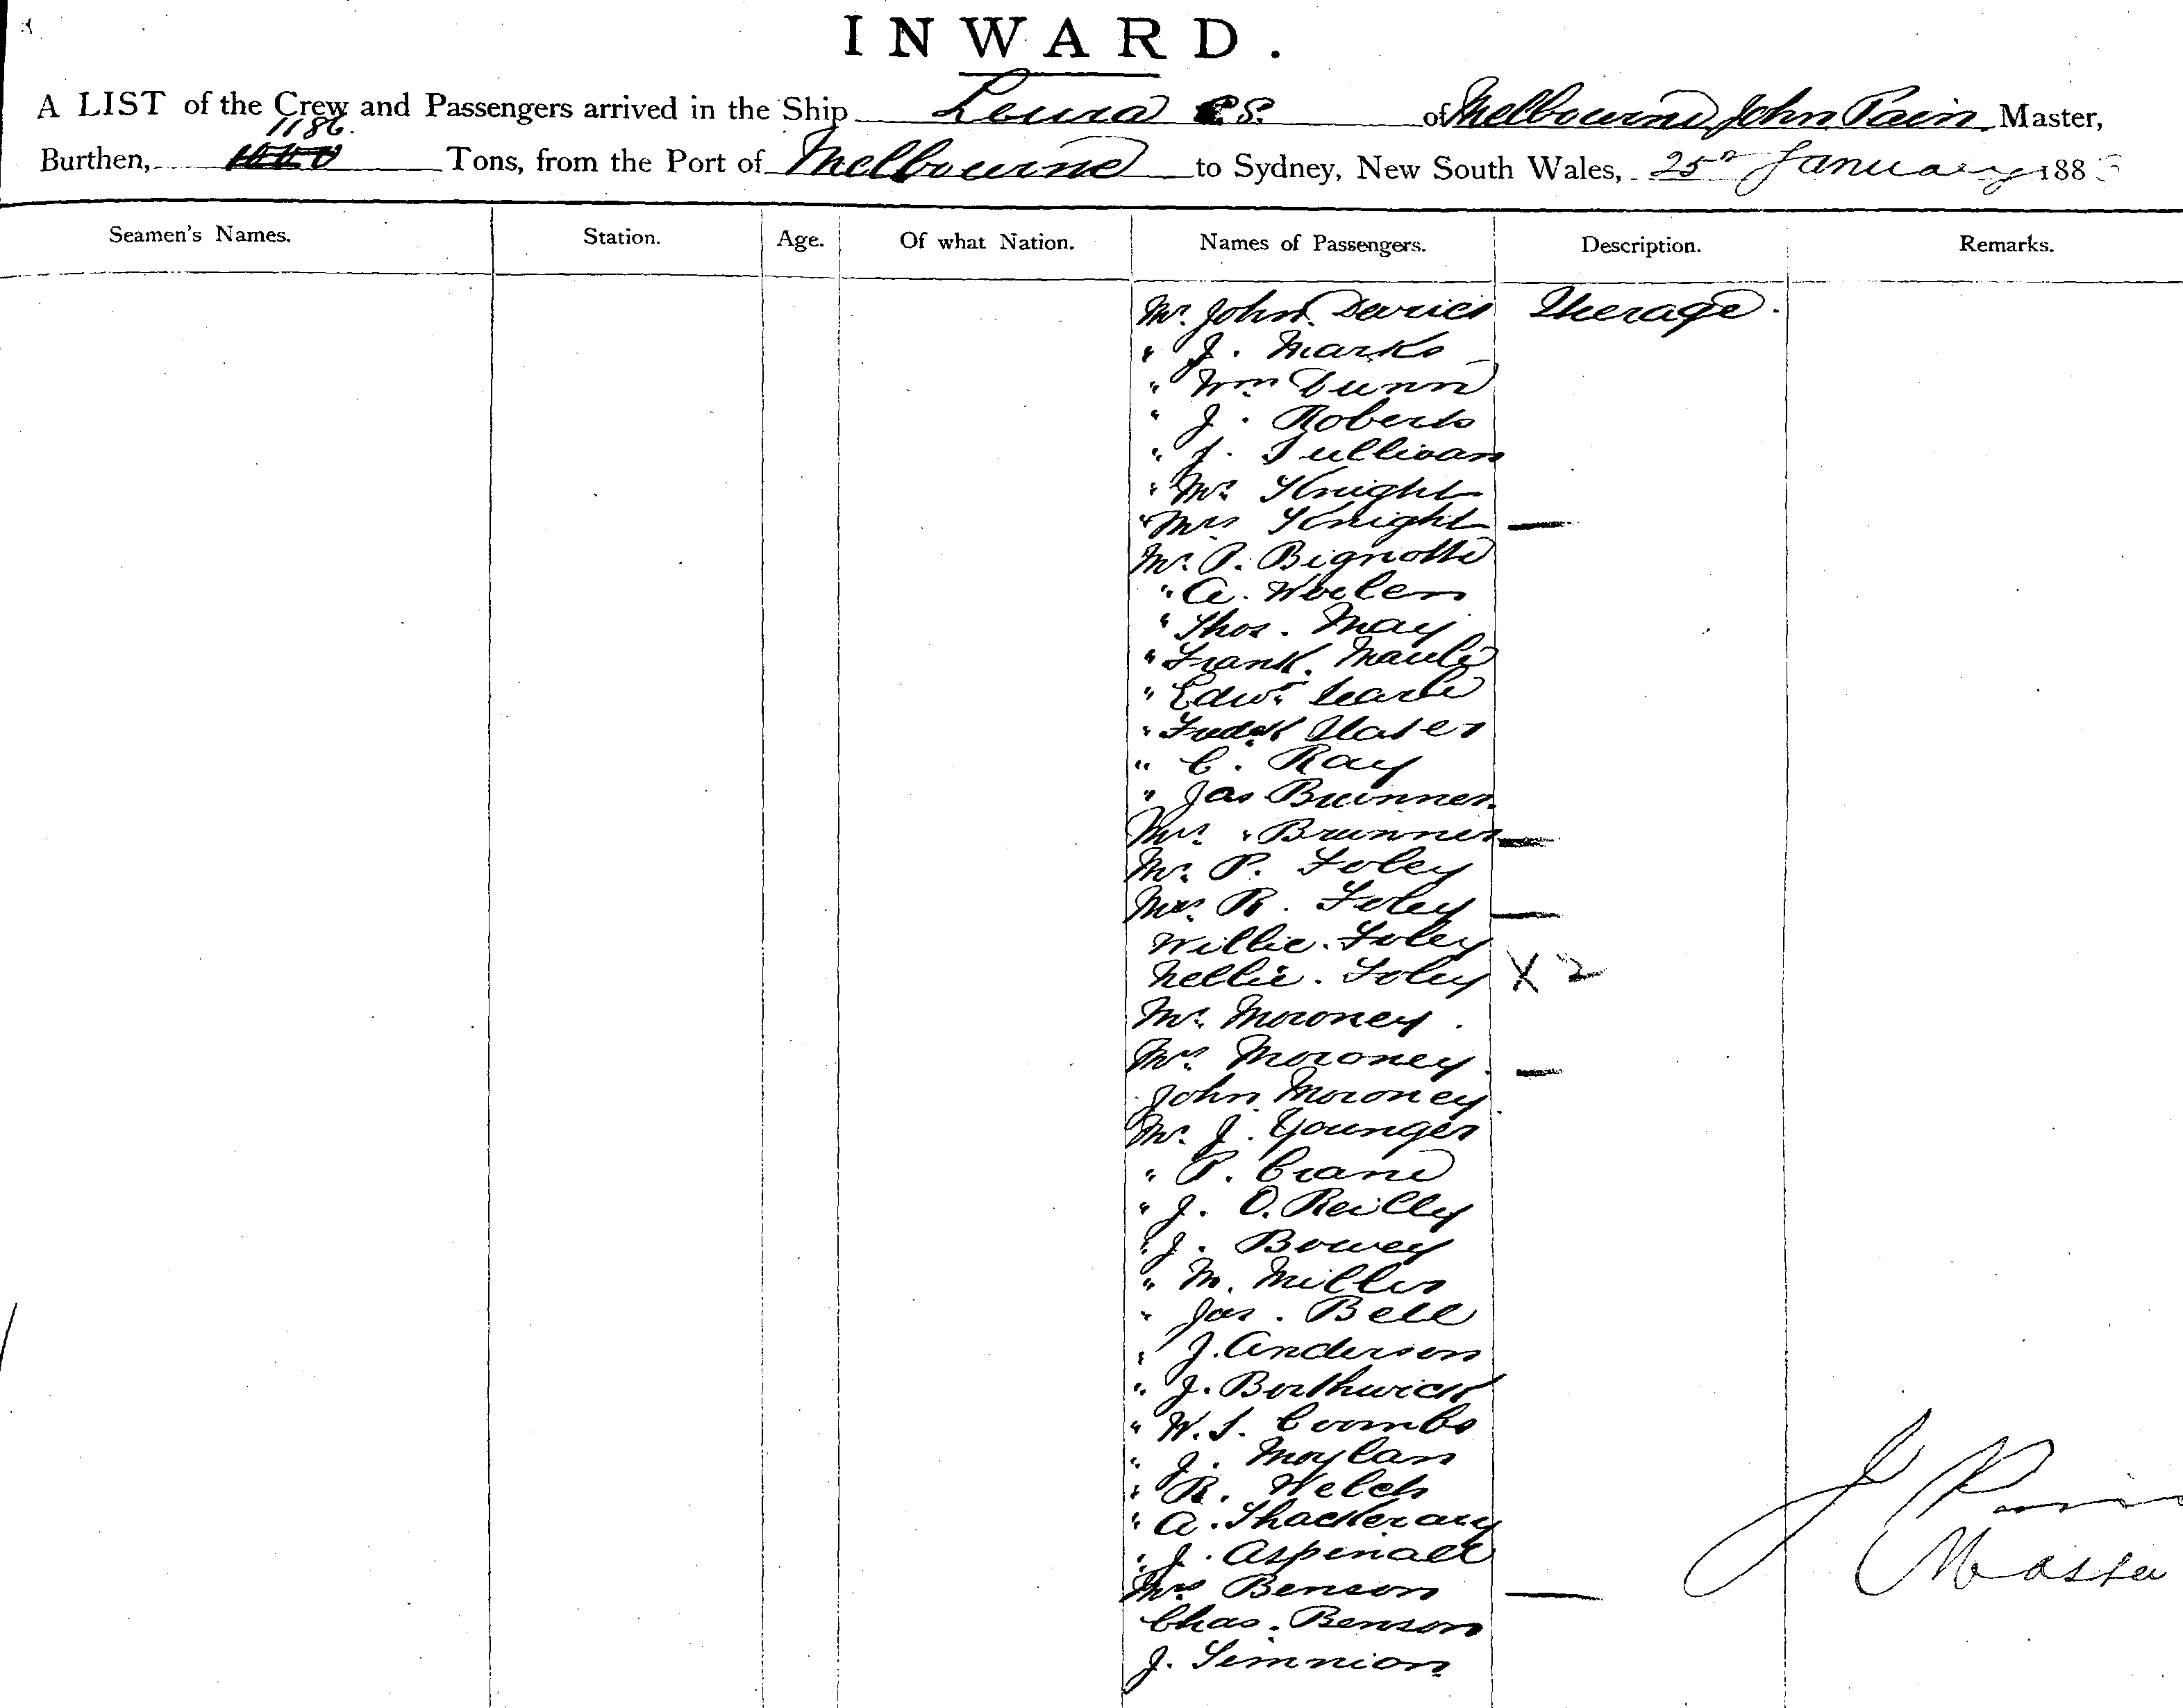 INWARD.
A LIST of the Crew and Passengers arrived in the Ship Loura S.S. of Melbourne, John Pain, Master,
1186.
Burthen, Tons, from the Port of Melbourne to Sydney, New South Wales, 25th January 188
Seamen's Names. Station. Age. Of what Nation. Names of Passengers. Description. Remarks.
Mr. John Davies Steerage.
" J. Marks
" Wm Dunn
" J. Roberts
" J. Sullivan
" Mr. Knight
" Mrs Knight —
Mr. P. Bignotti
" A. Woelen
" Thos. May
" Frank. Maule
" Edwd. Searle
" Fredk Slater
" C. Ray
" Jas Brunner
Mrs. " Brunner —
Mr. P. Foley
Mrs. R. Foley —
Willie. Foley
Nellie. Foley X 2
Mr. Moroney.
Mrs. Moroney. —
John Moroney.
Mr. J. Younger
" P. Crane
" J. O. Reilly
" J. Bowey
" M. Miller
" Jas. Bell
" J. Anderson
" J. Borthwick
" W. S. Coombs
" J. Moylan
" R. Welch
" A. Thackeray
" J. Aspinall
Mrs Benson —
Chas. Benson
J. Simnion
J Pain
Master